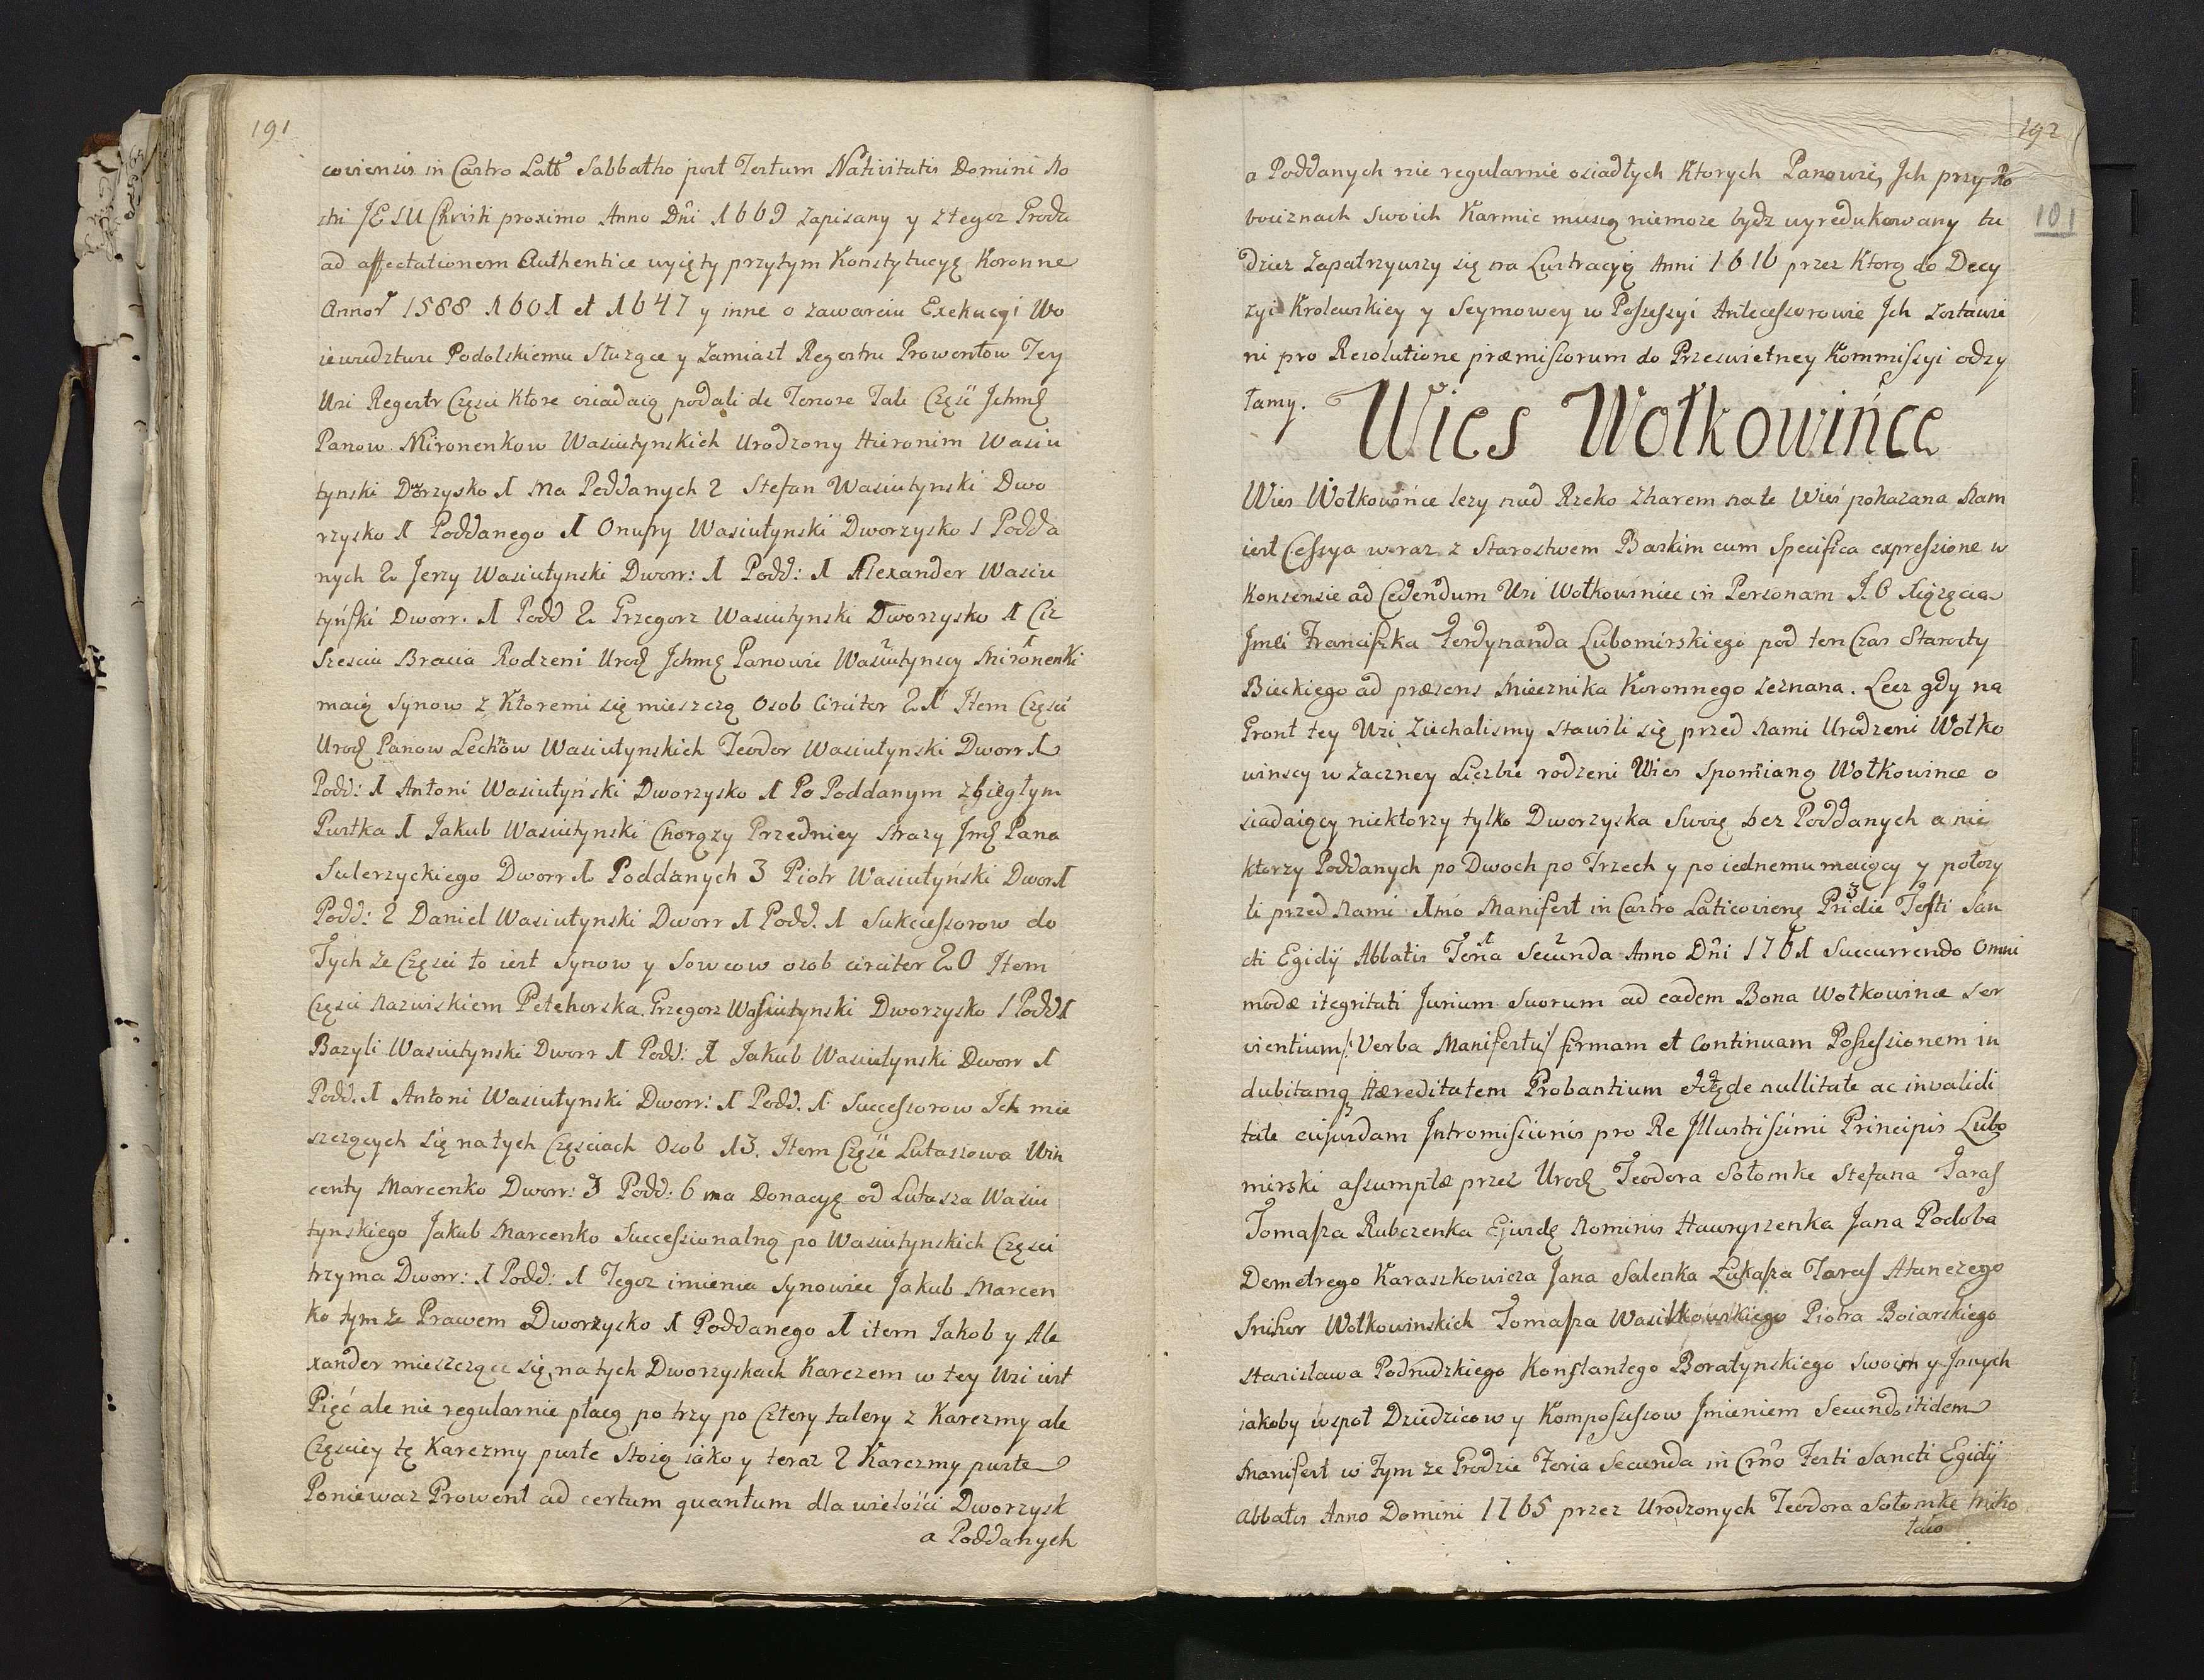 191
coviensis in Castro Latt Sabbatho post Festum Nativitatis Domini No
stri JESU Christi proximo Anno Dñi 1669 zapisany y z tegoz Grodu
ad affectationem Authentice wyięty przytym Konstytucyę Koronne
Annor 1588 1601 et 1647 y inne o zawarciu Exekucyi Wo
iewudztwu Podolskiemu Służące y zamiast Regestru Prowentow Tey
Wsi Regestr Częsci Ktore osiadaią podali de Tenore Tali Częsć Jchmę
Panow Mironenkow Wasiutynskich Urodzony Hieronim Wasiu
tynski Dworzysko 1 Ma Poddanych 2 Stefan Wasiutynski Dwo
rzysko 1 Poddanego 1 Onufry Wasiutynski Dworzysko 1 Podda
nych 2 Jerzy Wasiutynski Dworr: 1 Podd: 1 Alexander Wasiu
tyński Dworr. 1 Podd 2 Grzegorz Wasiutynski Dworzysko 1 Ciż
Szesciu Bracia Rodzeni Urodz Jchmę Panowie Wasiutynscy Mironenki
maią Synow z Ktoremi się mieszczą Osob Circiter 21 Item Częsci
Urodz Panow Lechnow Wasiutynskich Teodor Wasiutynski Dworr 1
Podd: 1 Antoni Wasiutyński Dworzysko 1 Po Poddanym zbiegłym
Pustka 1 Jakub Wasiutynski Chorązy Przedniey Strazy Jmę Pana
Sulerzyckiego Dworr 1 Poddanych 3 Piotr Wasiutyński Dwor 1
Podd: 2 Daniel Wasiutynski Dworr 1 Podd. 1 Sukcessorow do
Tych ze Częsci to iest Synow y Sowcow osob circiter 20 Item
Częsci Nazwiskiem Petehorska Grzegorz Wasiutynski Dworzysko 1 Podd 1
Bazyli Wasiutynski Dworr 1 Podd: 1 Jakub Wasiutynski Dworr 1
Podd. 1 Antoni Wasiutynski Dworr: 1 Podd. 1 Successorow Ich mie
szczących się na tych Częsciach Osob 13. Item Częsć Lutaszowa Win
centy Marcenko Dworr: 3 Podd: 6 ma Donacyę od Lutasza Wasiu
tynskiego Jakub Marcenko Successionalną po Wasiutynskich Częsci
trzyma Dworr: 1 Podd: 1 Tegoz imienia Synowiec Jakub Marcen
ko tym ze Prawem Dworzysko 1 Poddanego 1 item Jakob y Ale
xander mieszczące się na tych Dworzyskach Karczem w tey Wsi iest
Pięć ale nie regularnie płacą po trzy po Cztery talery z Karczmy ale
Częsciey tę Karczmy puste Stoią iako y teraz 2 Karczmy puste
Poniewaz Prowent ad certum quantum dla wielości Dworzysk
a Poddanych
192
101
a Poddanych nie regularnie osiadłych Ktorych Panowie Jch przy Ro
bociznach Swoich Karmic muszą niemoze bydz wyredukowany tu
dziez Zapatrzywszy się na Lustracyią Anni 1616 przez Ktorą do Decy
zyi Krolewskiey y Seymowey w Possessyi Antecessorowie Jch Zostawie
ni pro Resolutione præmissorum do Przeswietney Kommissyi odsy
łamy.
Wies Wołkowińce
Wies Wołkowińce lezy nad Rzeko Zharem na te Wieś pokazana Nam
iest Cessya wraz z Starostwem Barskim cum specifica expressione w
Konsensie ad Cedendum Wsi Wołkowiniec in Personam J. O Xiązęcia
Jmći Franciszka Ferdynanda Lubomirskiego pod ten Czas Starosty
Bieckiego ad præsens Miecznika Koronnego zeznana. Lecz gdy na
Gront tey Wsi Ziechalismy stawili się przed Nami Urodzeni Wołko
winscy w zaczney Liczbie rodzeni Wies Spomianą Wołkowince o
siadaiący niektorzy tylko Dworzyska Swoię bez Poddanych a nie
ktorzy Poddanych po Dwoch po Trzech y po iednemu maiący y połozy
li przed Nami 1mo Manifest in Castro Laticovienę Pridie Festi San
cti Egidÿ Abbatis Feria Secunda Anno Dñi 1761 Succurrendo Omni
modæ itegritati Jurium Suorum ad eadem Bona Wołkowince Ser
vientium/: Verba Manifestu/ firmam et Continuam Possessionem in
dubitamq Hæreditatem Probantium de nullitate ac invalidi
tate cujusdam Intromissionis pro Re Jllustrissimi Principis Lubo
mirski assumptæ przez Urodz Teodora Sołomke Stefana Taras
Tomasza Rubczenka Ejusdę Nominis Hawryszenka Jana Podoba
Demetrego Karaszkowicza Jana Salenka Łukasza Taras Atanezego
Snihor Wołkowinskich Tomasza Wasilkowskiego Piotra Boiarskiego
Stanisława Podrudzkiego Konstantego Boratynskiego Swoim y Jnnych
iakoby wspoł Dziedzicow y Kompossessow Jmieniem Secundo itidem
Manifest w tym ze Grodzie Feria Secunda in Crño Festi Sancti Egidÿ
Abbatis Anno Domini 1765 przez Urodzonych Teodora Sołomkę Miko
łaia